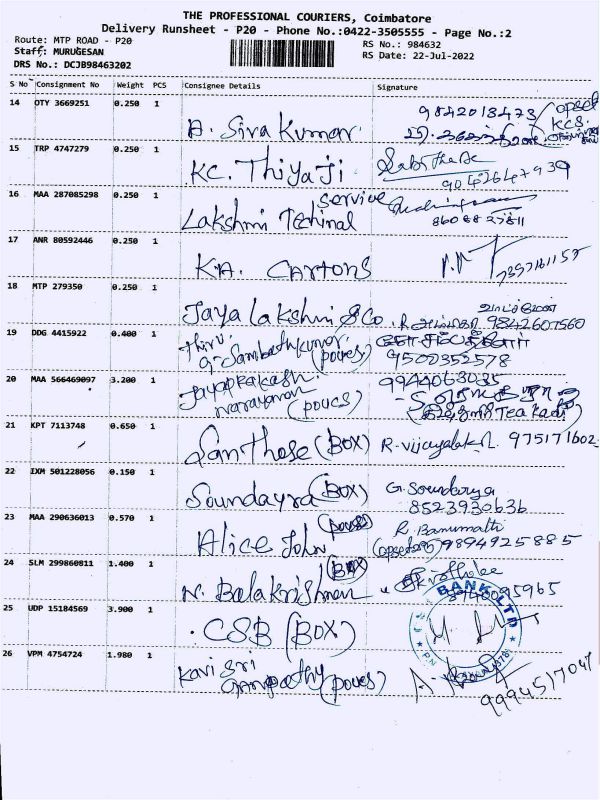 THE PROFESSIONAL COURIERS, Coimbatore
Delivery Runsheet - P20 - Phone No.:0422-3505555 - Page No.:2
Route: MTP ROAD - P20
RS No.: 984632
Staff: MURUGESAN
RS Date: 22-Jul-2022
DRS No.: DCJB98463202
S No Consignment No Weight PCS Consignee Details Signature
14 OTY 3669251 0.250 1 A. Siva Kumar. 9842013473
15 TRP 4747279 0.250 1 KC. Thiyaji
16 MAA 287085298 0.250 1 Lakshmi Techinal service 8608827811
17 ANR 80592446 0.250 1 K.A. CARTONS 7397161157
18 MTP 279350 0.250 1 Jaya Lakshmi & Co 9842607560
19 DDG 4415922 0.400 1 Thiru. G. Sambathkumar. (poues) 9500352578
20 MAA 566469097 3.200 1 Jayaprakash Narayanan (poues) 9944063035
21 KPT 7113748 0.650 1 Santhose (BOX) R. vijayalak 975171602
22 IXM 501228056 0.150 1 Soundayra (BOX) G. Soundarya 8523930636
23 MAA 290636013 0.570 1 Alice John (poues) R. Banumathi 9894925885
24 SLM 299860811 1.400 1 N. Balakrishnan (BOX)
25 UDP 15184569 3.900 1 CSB (BOX)
BANK LTD
26 VPM 4754724 1.980 1 Kavi Sri Ganpathy (poues) 9994517047